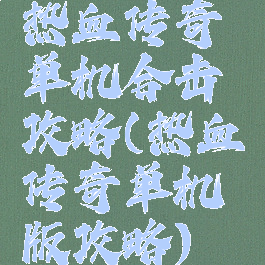 热血传奇
单机合击
攻略(热血
传奇单机
版攻略)